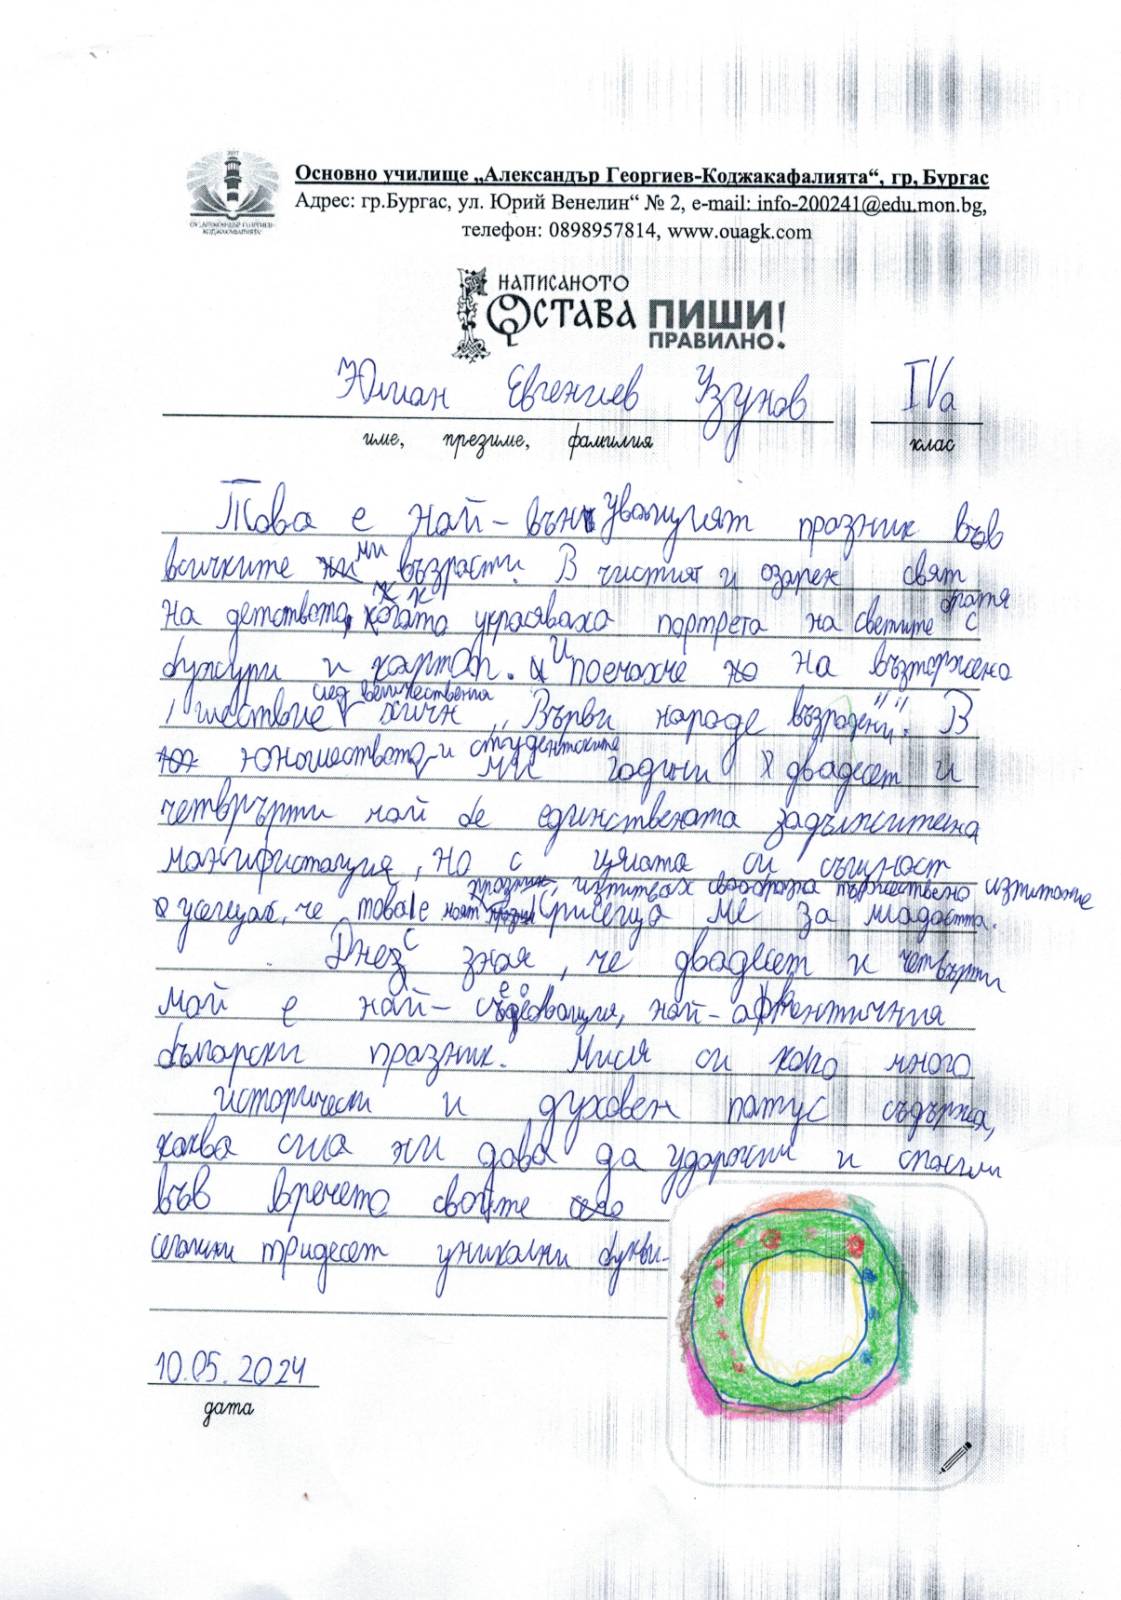 Основно училище „Александър Георгиев-Коджакафалията“, гр, Бургас
Адрес: гр.Бургас, ул. Юрий Венелин“ № 2, e-mail: info-200241@edu.mon.bg,
телефон: 0898957814, www.ouagk.com
НАПИСАНОТО
ОСТАВА ПИШИ!
ПРАВИЛНО!
Юлиан Евгениев Узунов IVа
име, презиме, фамилия клас
Това е най-вълнуващият празник във
всичките ми възрасти. В чистият и озарен свят
на детството, когато украсявахa портрета на светите братя с
божури и здравец. И поемахме на възторжено
шествие след величествения химн „Върви народе възродени“. В
юношеството и студентските ми години двадесет и
четвърти май бе единствената задължителна
манифистация, но с цялата си същност
усещах, че това е моят
Днес зная, че двадесет и четвърти
май е най- най-автентичния
български празник. Мисля си колко много
исторически и духовен патус съдържа,
каква сила ни дава да удържим и спасим
във времето своите
тридесет уникални букви.
10.05.2024
дата